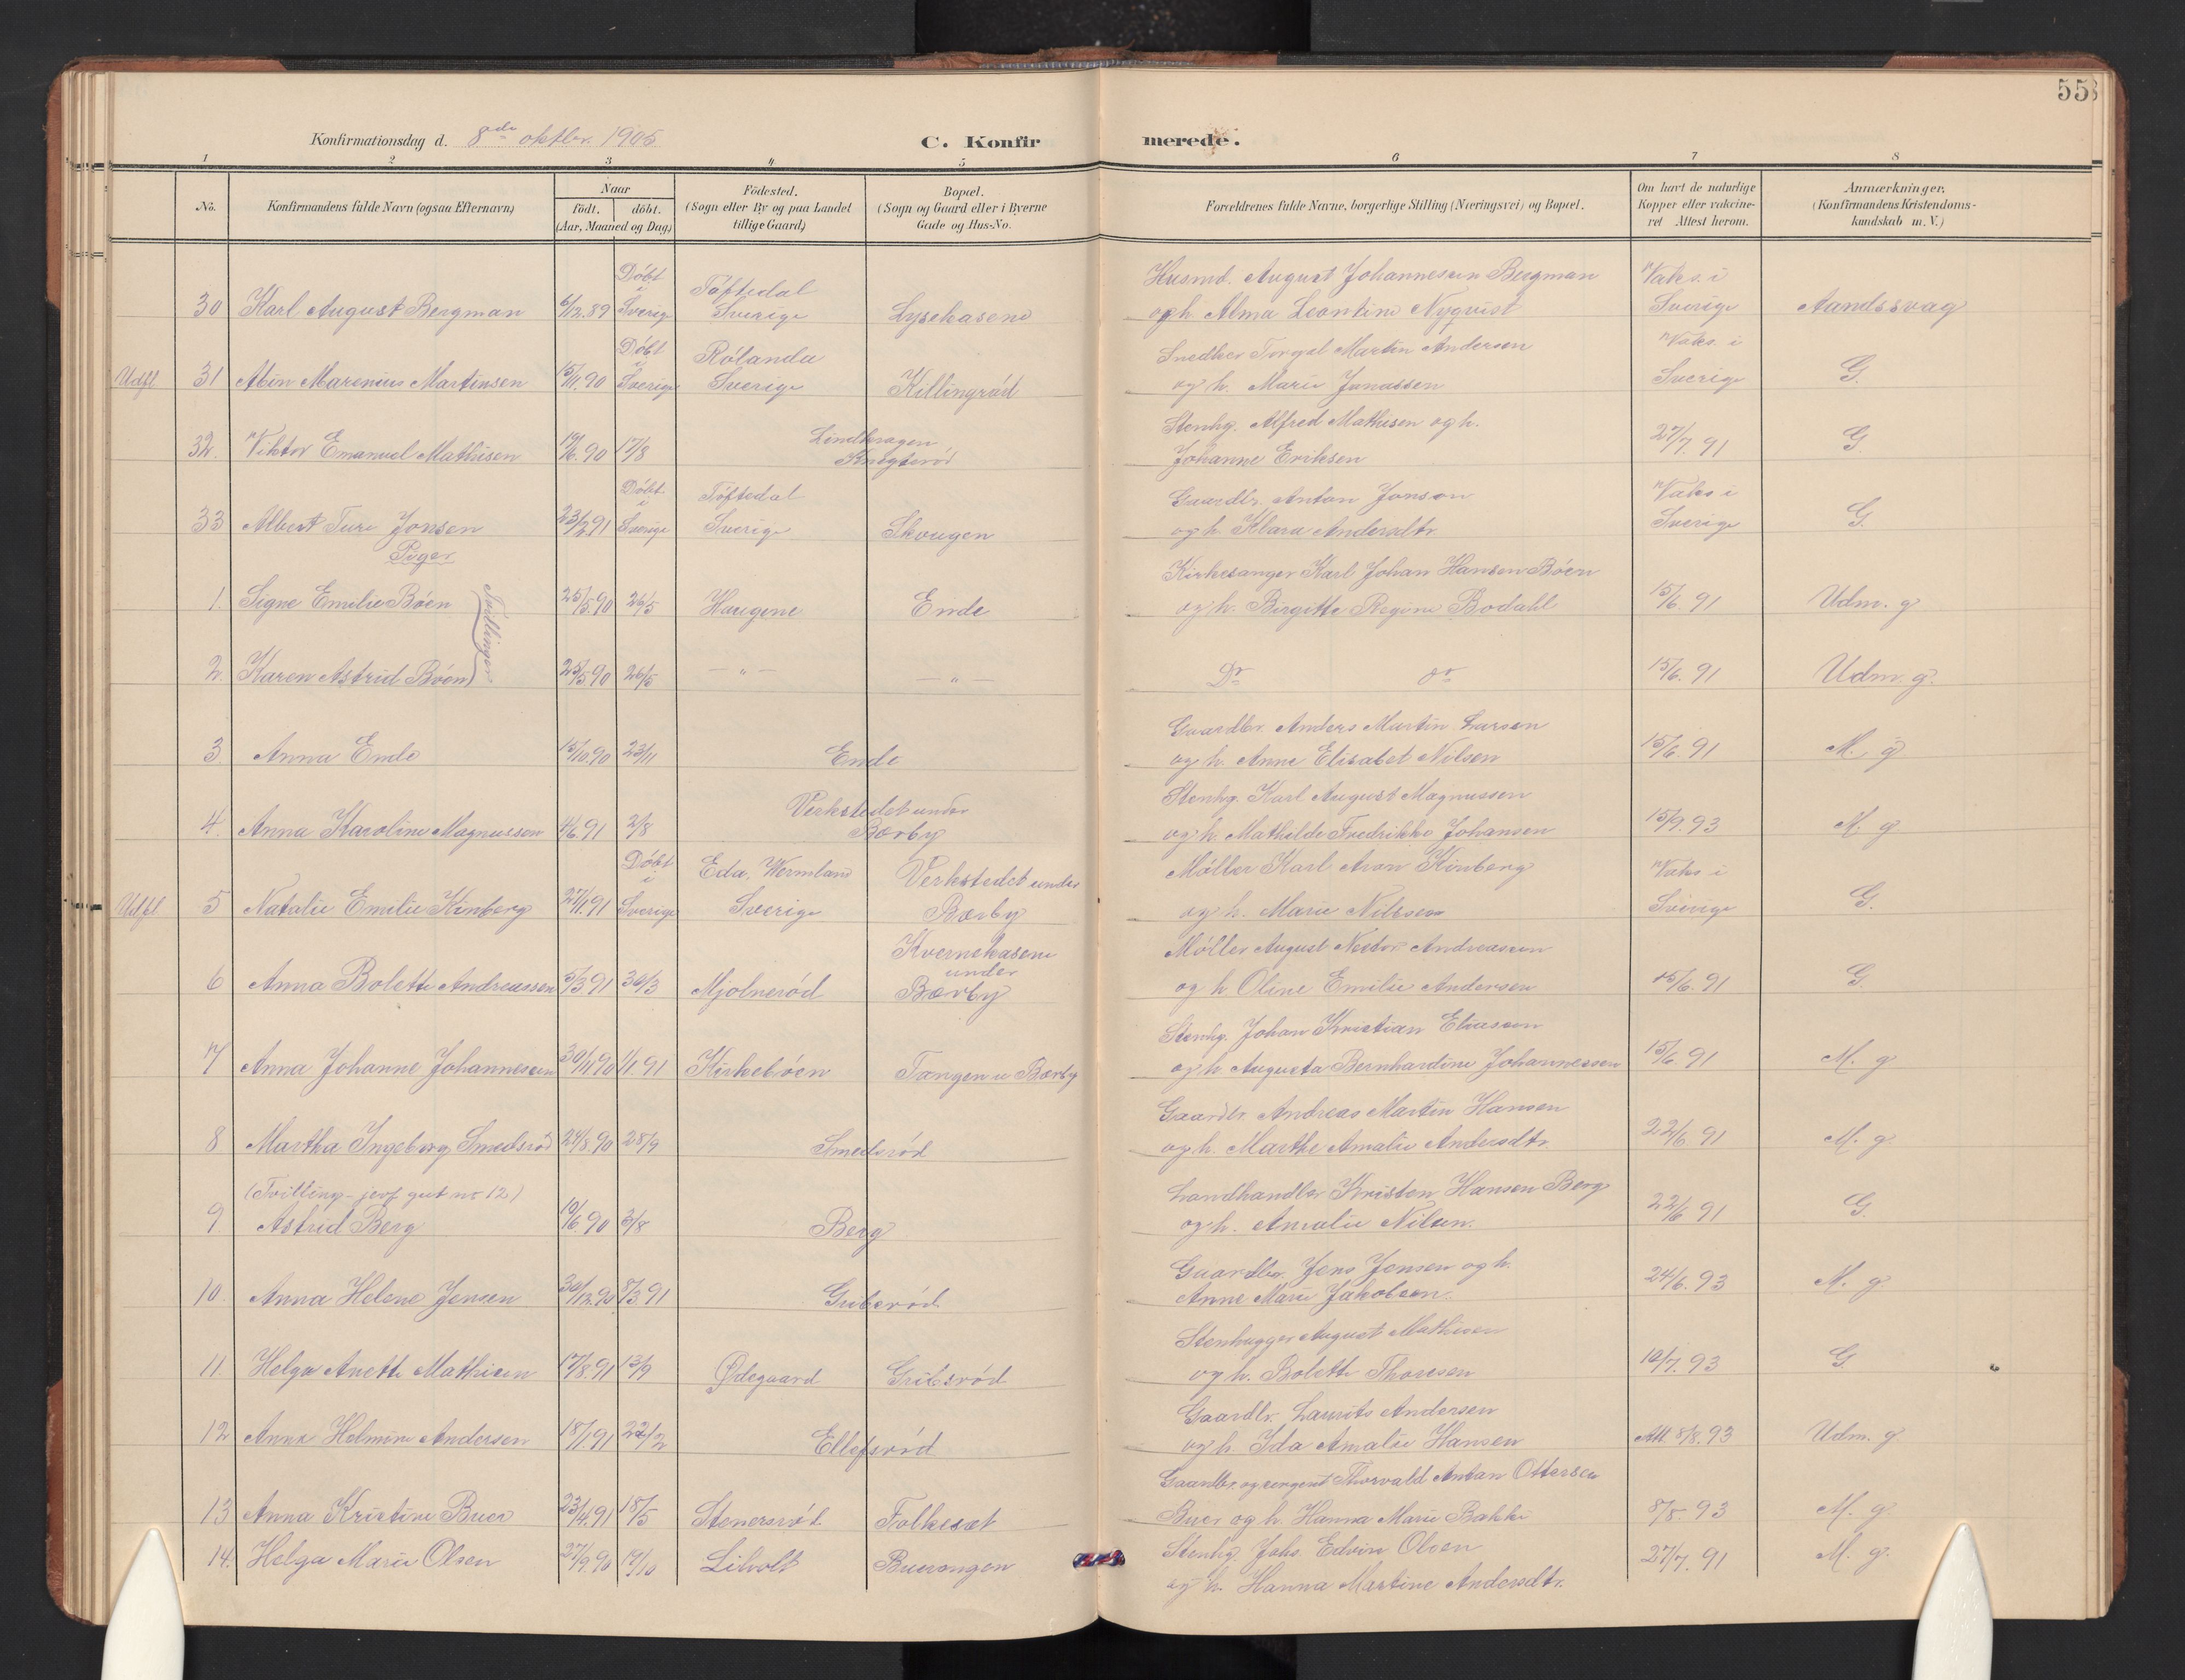 55
Konfirmationsdag d. 8de oktbr. 1905
C. Konfirmerede.
1 2 3 4 5 6 7 8
No. Konfirmandens fulde Navn (ogsaa Efternavn) Naar født. døbt. (Aar, Maaned og Dag) Fødested. (Sogn eller By og paa Landet tillige Gaard) Bopæl. (Sogn og Gaard eller i Byerne Gade og Hus-No. Forældrenes fulde Navne, borgerlige Stilling (Næringsvei) og Bopæl. Om havt de naturlige Kopper eller vakcineret Attest herom. Anmærkninger. (Konfirmandens Kristendomskundskab m. V.)
30 Karl August Bergman 6/12.89 Döbt i Sverig Töftedal Sverige Lysekasene Husmd. August Johannessen Bergman og h. Alma Leontine Nyqvist Vaks. i Sverige Aandssvag
Udfl 31 Albin Marenius Martinsen 15/11.90 Döbt i Sverige Rölanda Sverige Killingröd Snedker Torgal Martin Andersen og h. Marie Janassen Vaks. i Sverige G.
32. Viktor Emanuel Mathisen 19/6.90 17/8 Lindhaugen Knegteröd Stenhg. Alfred Mathisen og h. Johanne Eriksen 27/7.91 G.
33 Albert Ture Jonsen 23/2.91 Döbt i Sverige Töftedal Sverige Skougen Gaardbr. Anton Jonson og h. Klara Andersdtr Vaks i Sverige G.
Piger
1. Signe Emilie Böen 25/5.90 26/5 Haugene Ende Kirkesanger Karl Johan Hansen Böen og h. Birgitte Regine Bodahl 15/6.91 Udm. g
Tvillinger
2. Karen Astrid Böen 25/5.90 26/5 — " — — " — Do do 15/6.91 Udm. g.
3 Anna Ende 15/10.90 23/11 Ende Gaardbr. Anders Martin Larsen og h. Anne Elisabet Nilsen 15/6.91 M. g
4. Anna Karoline Magnussen 4/6.91 2/8 Verkstedet under Bærby Stenhg. Karl August Magnussen og h. Mathilde Fredrikke Johansen 15/9.93 M. g
Udfl 5 Natalie Emilie Kinberg 27/1.91 Döbt i Sverige Eda, Wermland Sverige Verkstedet under Bærby Möller Karl Aron Kinberg og h. Marie Nilssen Vaks i Sverige G.
6 Anna Bolette Andreassen 5/3.91 30/3 Mjölneröd Kvernekasene under Bærby Möller August Nestor Andreassen og h. Oline Emilie Andersen 15/6.91 G.
7 Anna Johanne Johannesen 30/11.90 1/1.91 Kirkebøen Tangen u Bærby Stenhg. Johan Kristian Eliassen og h Augusta Bernhardine Johannessen 15/6 91 M. g
8 Martha Ingeborg Smedsröd 24/8.90 28/9 Smedsröd Gaardbr. Andreas Martin Hansen og h. Marthe Amalie Andersdtr. 22/6.91 M. g
(Tvilling - jevf gut no 12)
9. Astrid Berg 10/6.90 3/8 Berg Landhandler Kristen Hansen Berg og h. Amalie Nilsen. 22/6 91 G.
10 Anna Helene Jensen 30/12.90 8/3.91 Gribsröd Gaardbr. Jens Jensen og h. Anne Marie Jakobsen. 24/6.93 M. g
11. Helga Anette Mathisen 17/8.91 13/9 Ødegaard Gribsröd Stenhugger August Mathisen og h. Bolette Thoresen 10/7.93 G.
12 Anna Helmine Andersen 18/1.91 22/2 Ellefsröd Gaardbr. Laurits Andersen og h. Ida Amalie Hansen Att. 8/8.93 Udm. g
13 Anna Kristine Buer 23/4.91 18/5 Stenersröd Folkesæt Gaardbr. og sergent Thorvald Anton Ottersen Buer og h. Hanna Marie Bakke 8/8.93 M. g.
14. Helga Marie Olsen 27/9.90 19/10 Liholt Buerangen Stenhg. Johs. Edvin Olsen og h. Hanna Martine Andersdtr. 27/7.91 M. g.